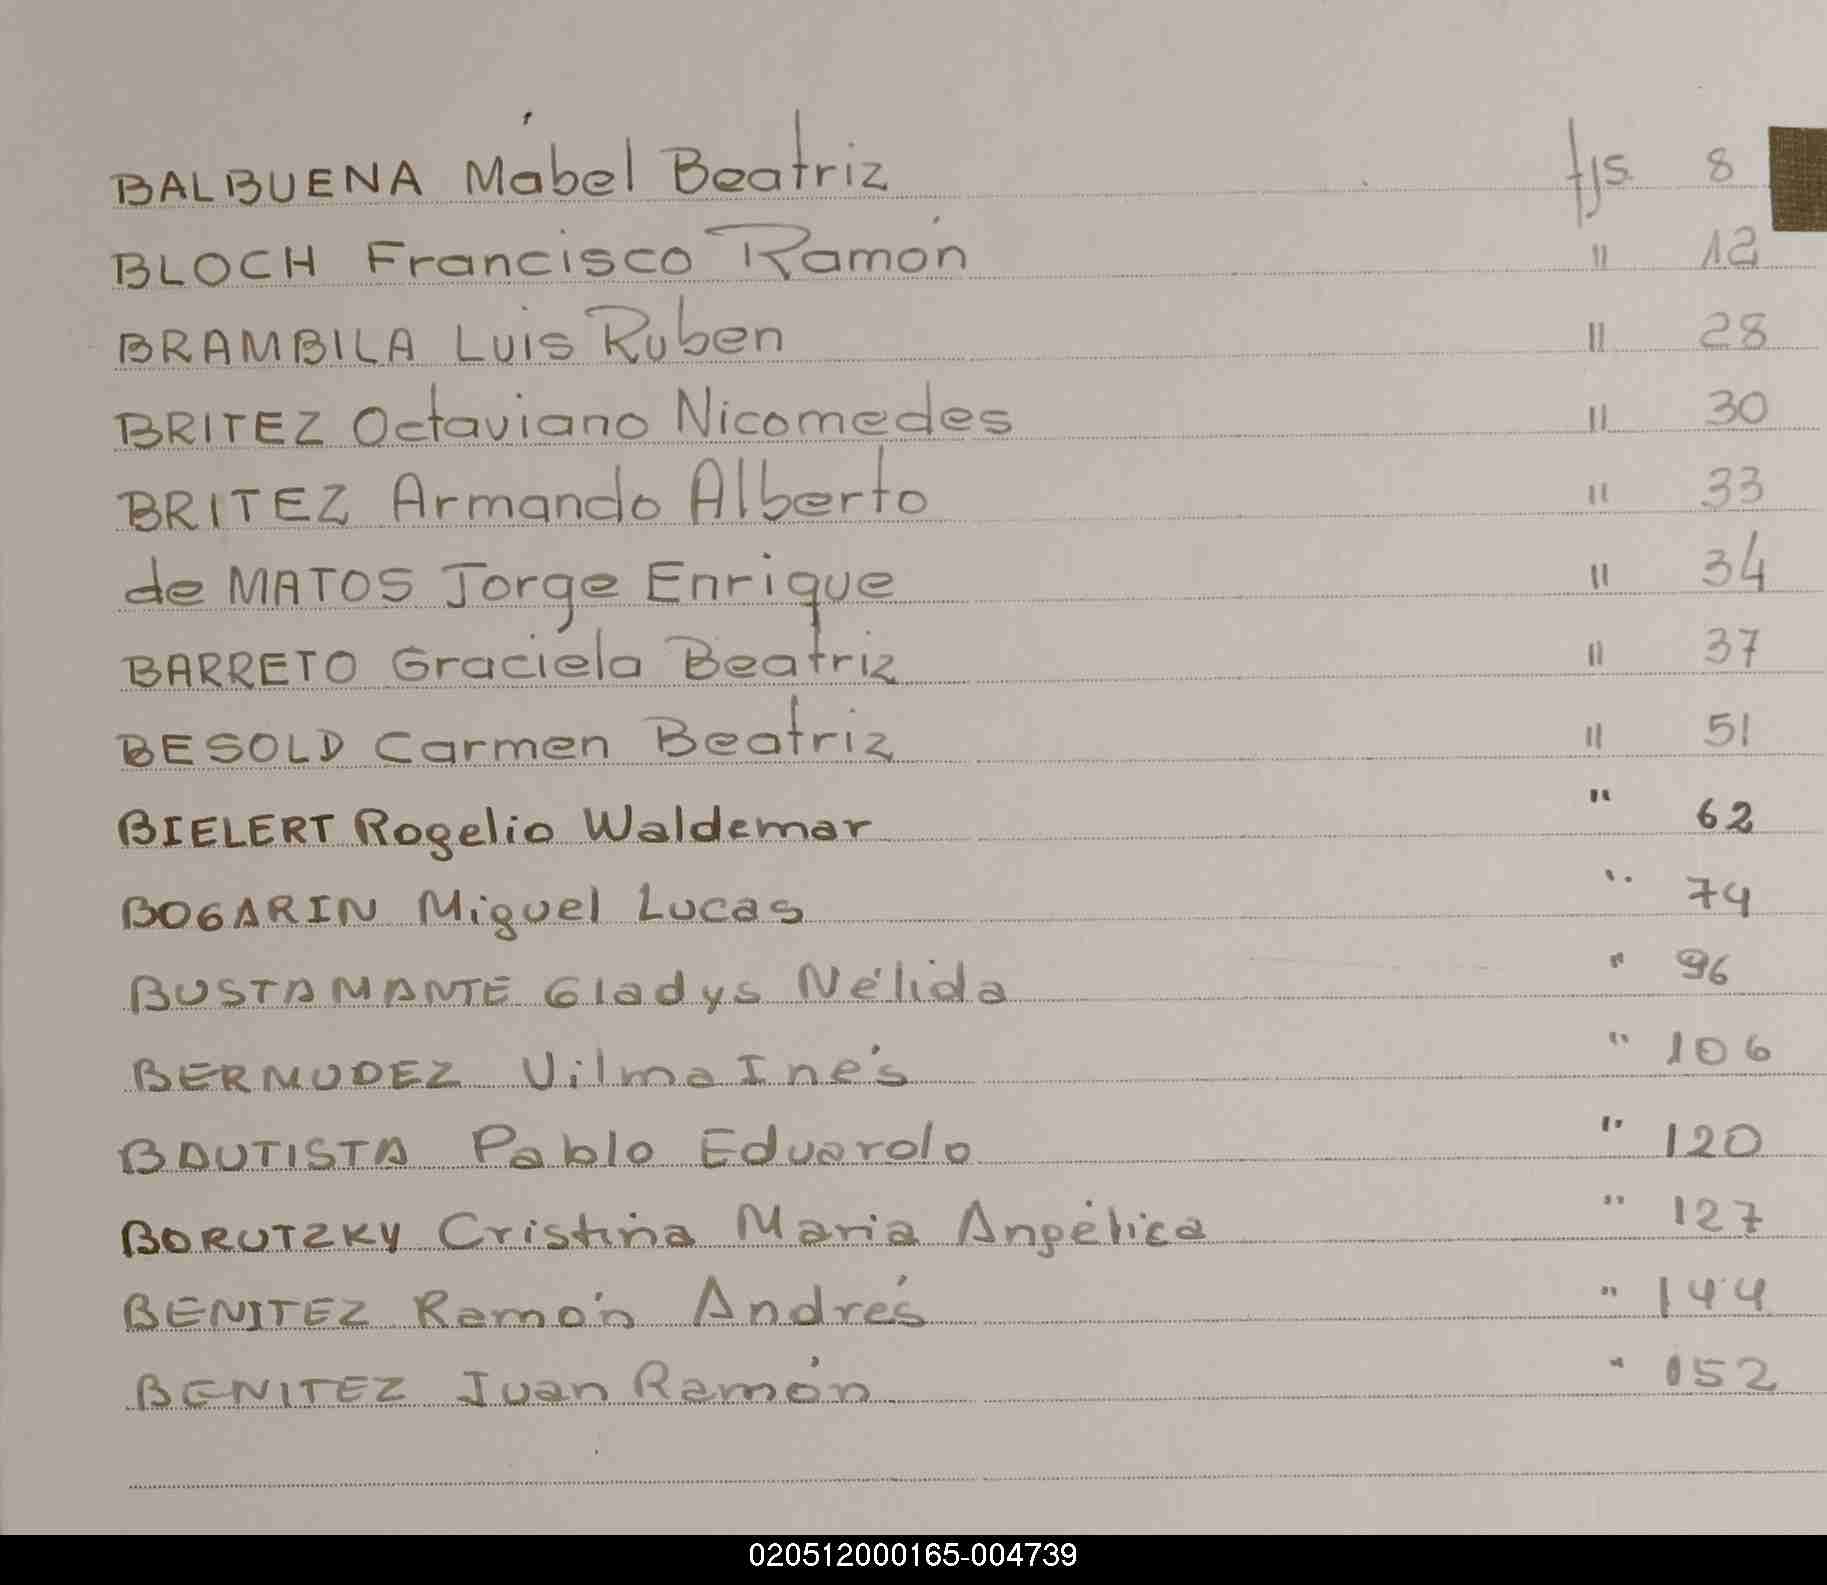 BALBUENA Mábel Beatriz fjs 8
BLOCH Francisco Ramón " 12
BRAMBILA Luis Ruben " 28
BRITEZ Octaviano Nicomedes " 30
BRITEZ Armando Alberto " 33
de MATOS Jorge Enrique " 34
BARRETO Graciela Beatriz " 37
BESOLD Carmen Beatriz " 51
BIELERT Rogelio Waldemar " 62
BOGARIN Miguel Lucas " 74
BUSTAMANTE Gladys Nélida " 96
BERMUDEZ Vilma Inés " 106
BAUTISTA Pablo Eduardo " 120
BORUTZKY Cristina Maria Angélica " 127
BENITEZ Ramón Andrés " 144
BENITEZ Juan Ramón " 152
020512000165-004739